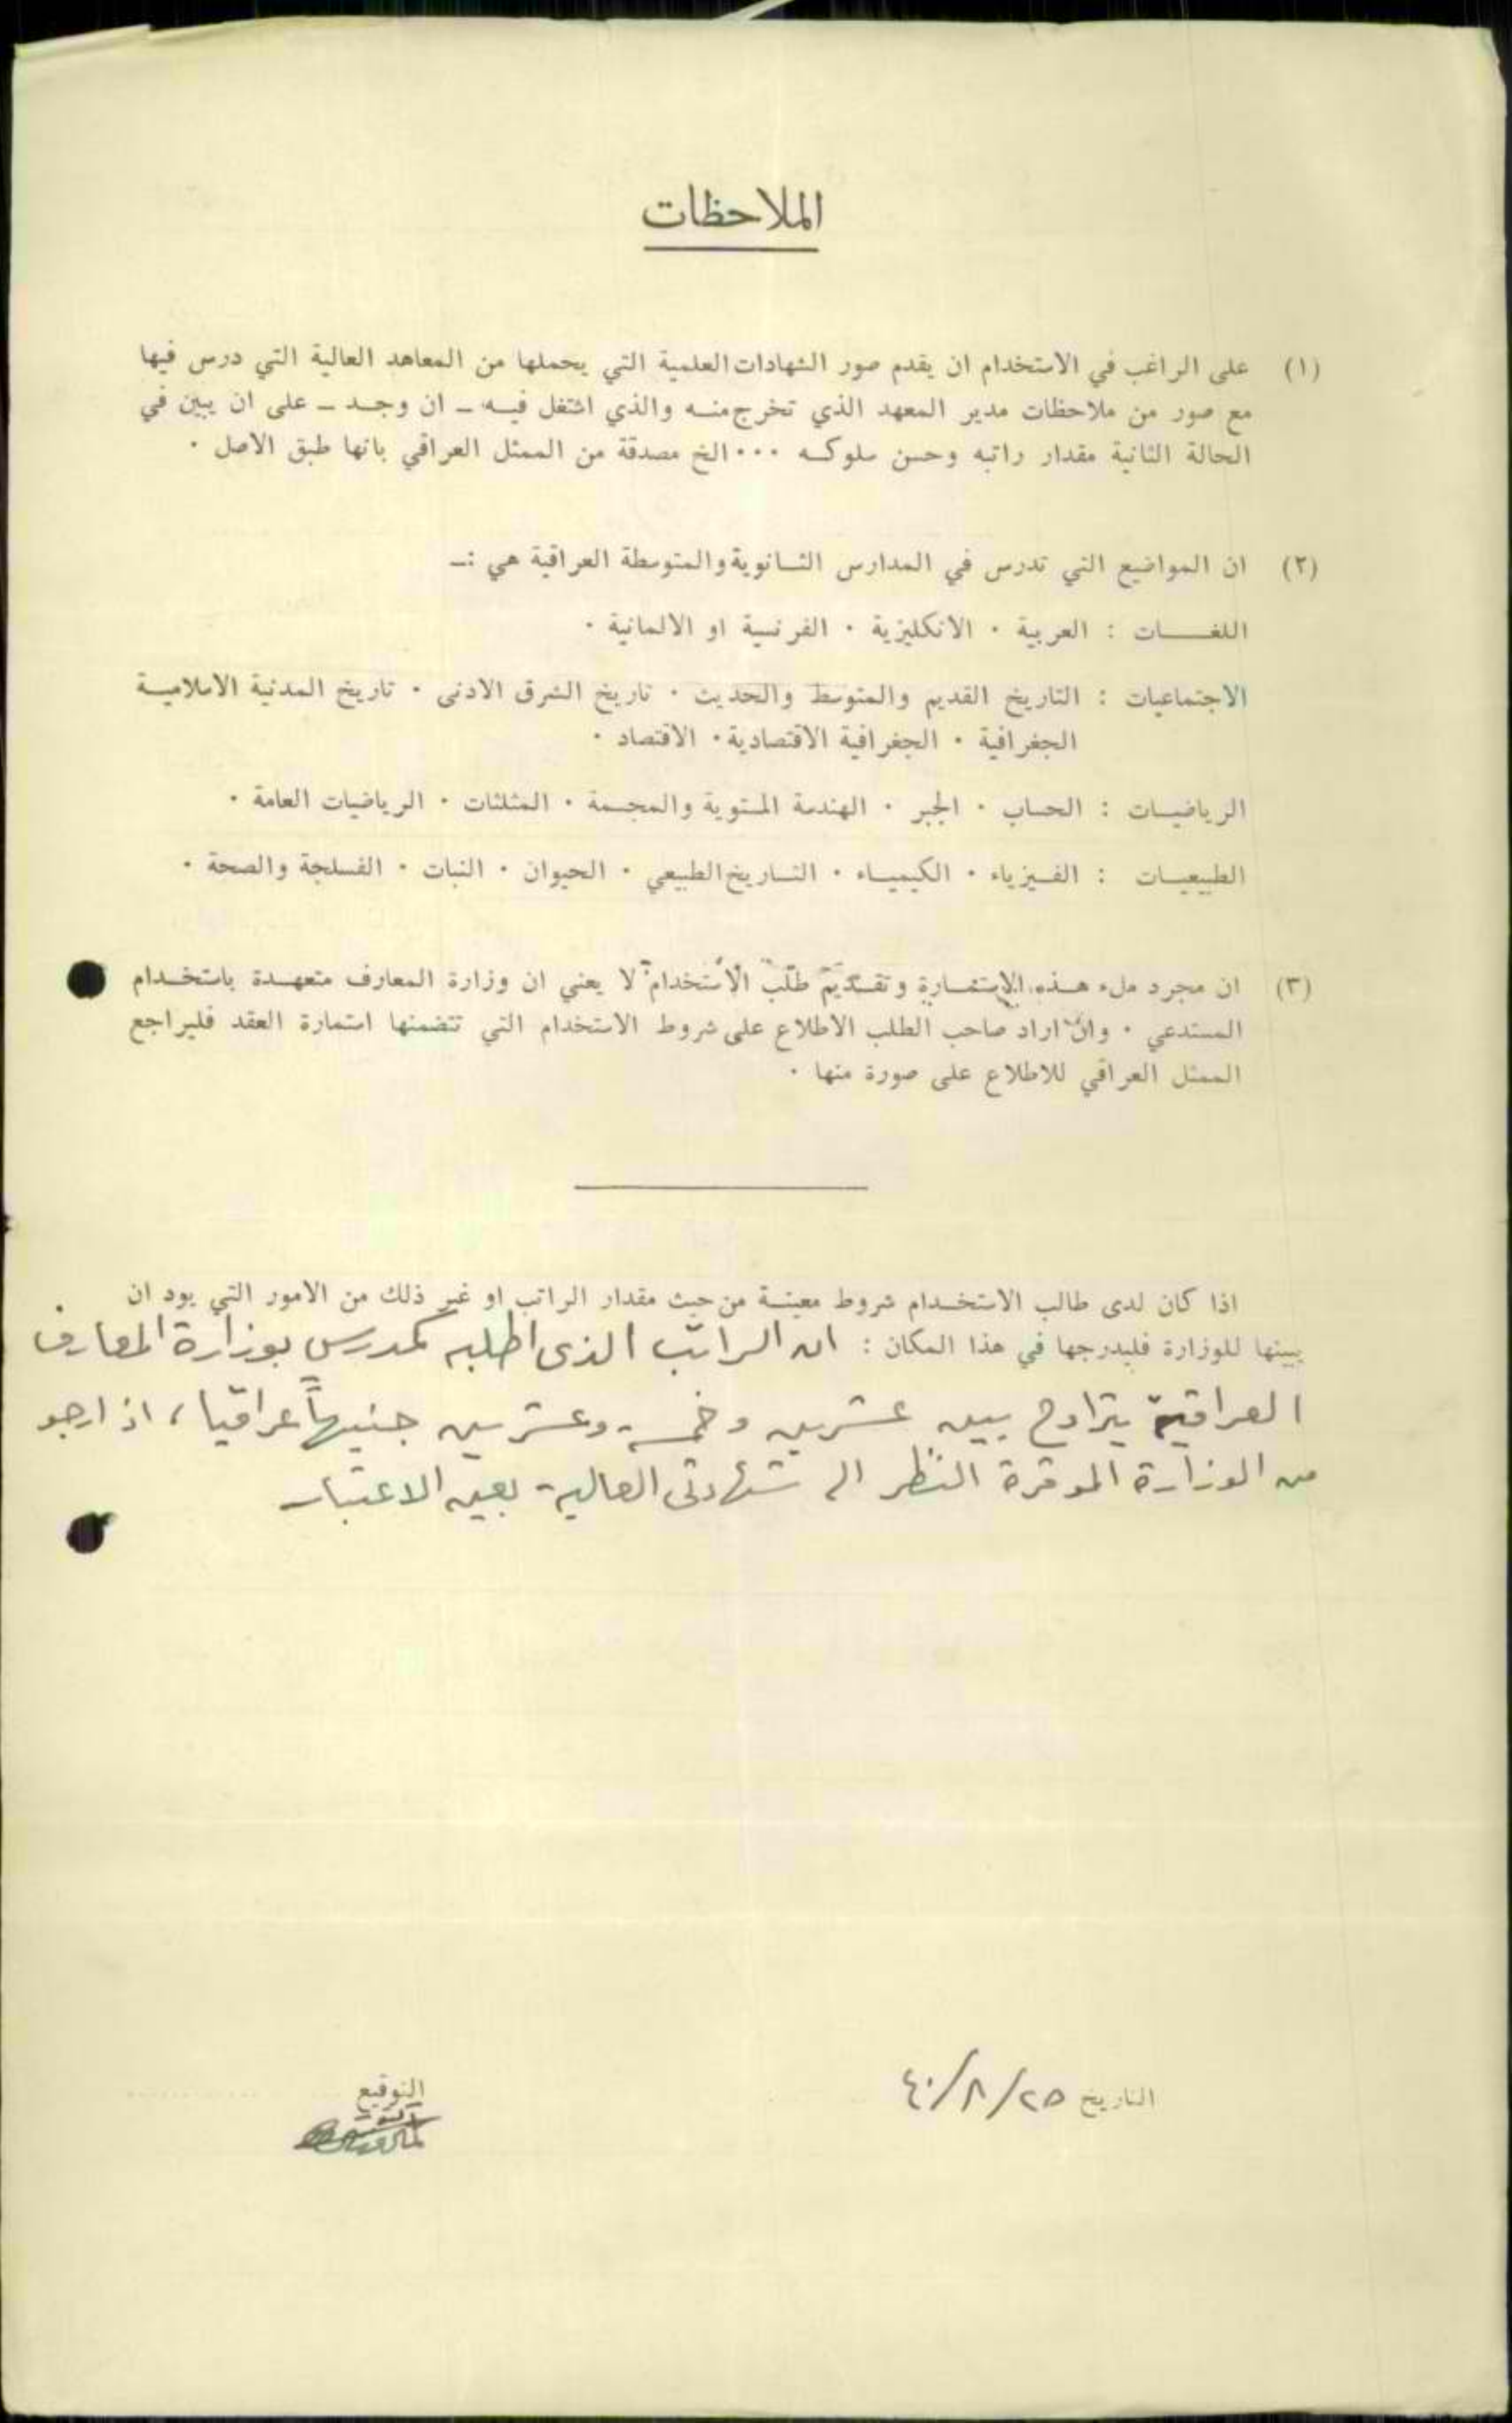 الملاحظات
(١) على الراغب في الاستخدام ان يقدم صور الشهادات العلمية التي يحملها من المعاهد العالية التي درس فيها
مع صور من ملاحظات مدير المعهد الذي تخرج منه والذي اشتغل فيه ــ ان وجد ــ على ان يبين في
الحالة الثانية مقدار راتبه وحسن سلوكه ٠٠٠ الخ مصدقة من الممثل العراقي بانها طبق الاصل ٠
(٢) ان المواضيع التي تدرس في المدارس الثانوية والمتوسطة العراقية هي :ــ
اللغات : العربية ٠ الانكليزية ٠ الفرنسية او الالمانية ٠
الاجتماعيات : التاريخ القديم والمتوسط والحديث ٠ تاريخ الشرق الادنى ٠ تاريخ المدنية الاسلامية
الجغرافية ٠ الجغرافية الاقتصادية ٠ الاقتصاد ٠
الرياضيات : الحساب ٠ الجبر ٠ الهندسة المستوية والمجسمة ٠ المثلثات ٠ الرياضيات العامة ٠
الطبيعيات : الفيزياء ٠ الكيمياء ٠ التاريخ الطبيعي ٠ الحيوان ٠ النبات ٠ الفسلجة والصحة ٠
(٣) ان مجرد ملء هذه الاستمارة وتقديم طلب الاستخدام لا يعني ان وزارة المعارف متعهدة باستخدام
المستدعي ٠ وان اراد صاحب الطلب الاطلاع على شروط الاستخدام التي تتضمنها استمارة العقد فليراجع
الممثل العراقي للاطلاع على صورة منها ٠
اذا كان لدى طالب الاستخدام شروط معينة من حيث مقدار الراتب او غير ذلك من الامور التي يود ان
يبينها للوزارة فليدرجها في هذا المكان : ان الراتب الذى اطلبه كمدرس بوزارة المعارف
العراقية يتراوح بين عشرين وخمسة وعشرين جنيهاً عراقيا ، اذ ارجو
من الوزارة الموقرة النظر الى شهادتى العالية بعين الاعتبار
التاريخ ٤٠/٨/٢٥
التوقيع